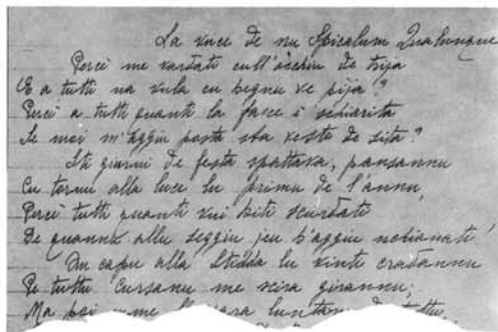 La vuce de nu Spicalum Qualunque
Perci me vardati cull'occhiu de trija
E a tutti na vula cu begnu ve pija?
Perci a tutti quanti la face s'è schiarita
Se moi m'aggiu posta sta veste de sita?
Sti giurni de festa spattava, pansannu
Cu tornu alla luce lu primu de l'annu,
Perci tutti quanti vui biti scurdati
De quannu allu seggiu jeu b'aggiu nchianati
Du capu alla Stidda lu vinti cradannu
Pe tuttu Cursanu me scira girannu;
Ma poi luntanu de tuttu,